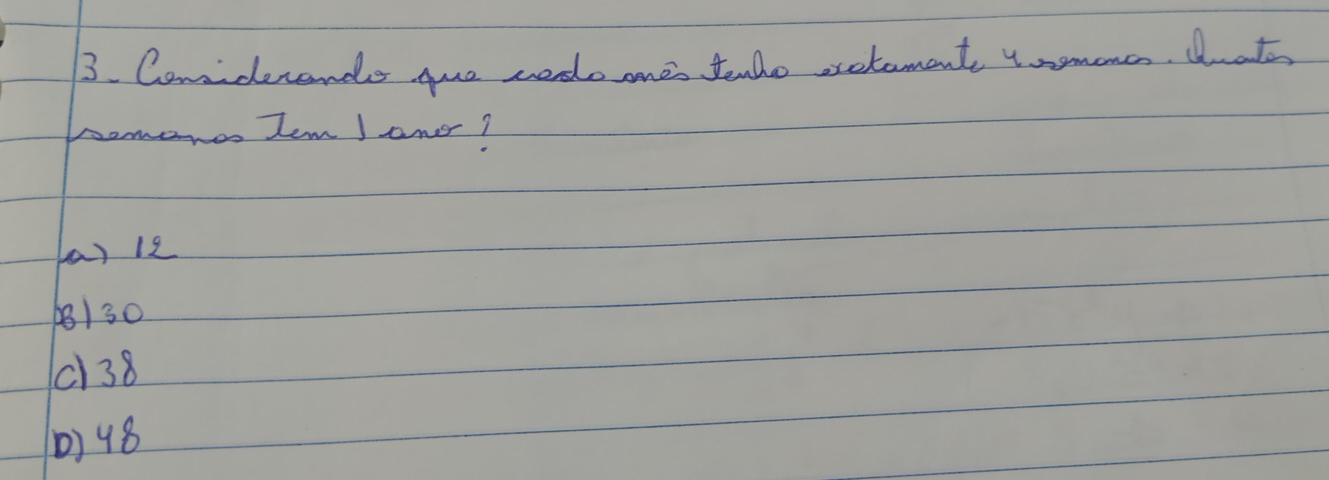 3. Considerando que cada mês tenha exatamente 4 semanas. Quantas
semanas Tem 1 ano?
a) 12
B) 30
C) 38
D) 48